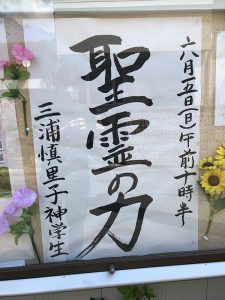 六月一五日(日)午前十時半
聖霊の力
三浦慎里子神学生